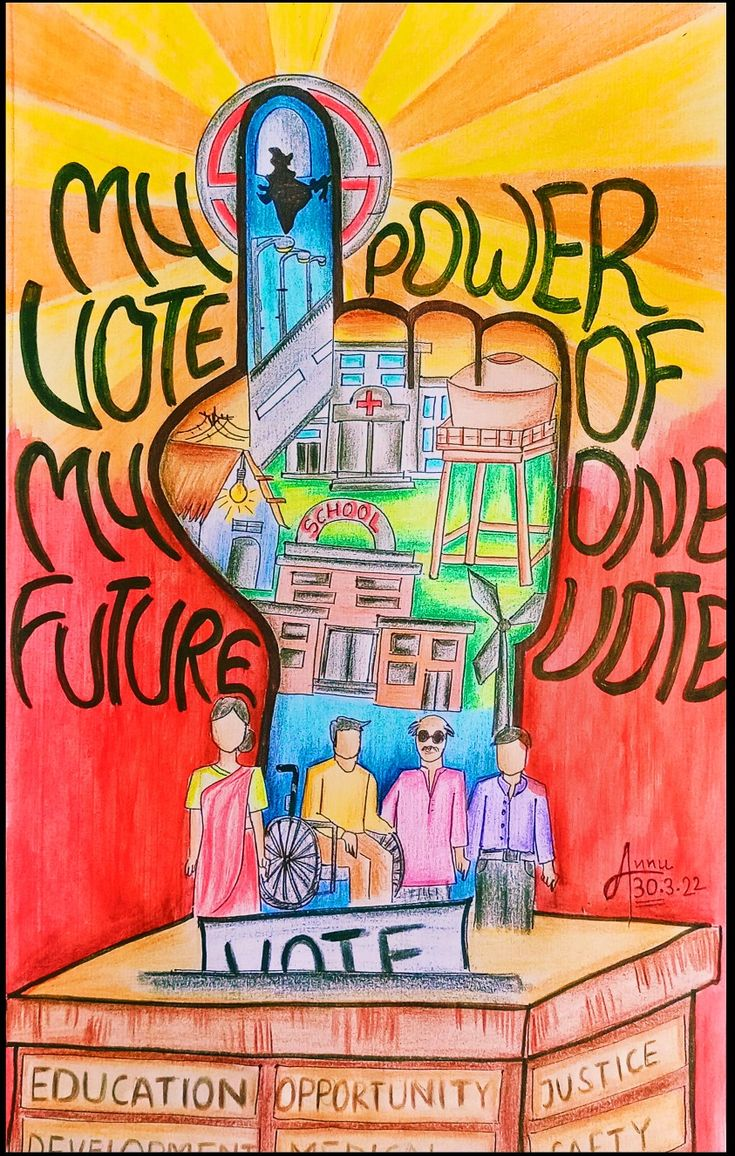 MY
VOTE
MY
FUTURE
POWER
OF
ONE
VOTE
SCHOOL
Annu
30.3.22
VOTE
EDUCATION
OPPORTUNITY
JUSTICE
DEVELOPMENT
MEDICAL
SAFTY